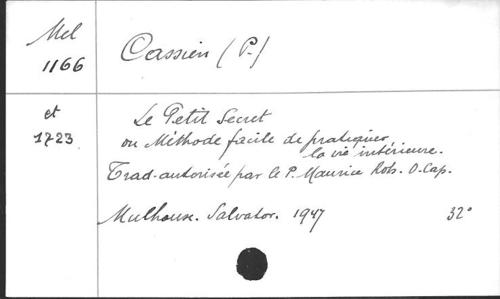 Mel
1166
Cassien (P.)
et
1723
Le Petit Secret
ou Méthode facile de pratiquer
la vie intérieure.
Trad. autorisée par le P. Maurice Rob. O. Cap.
Mulhouse. Salvator. 1947
32°